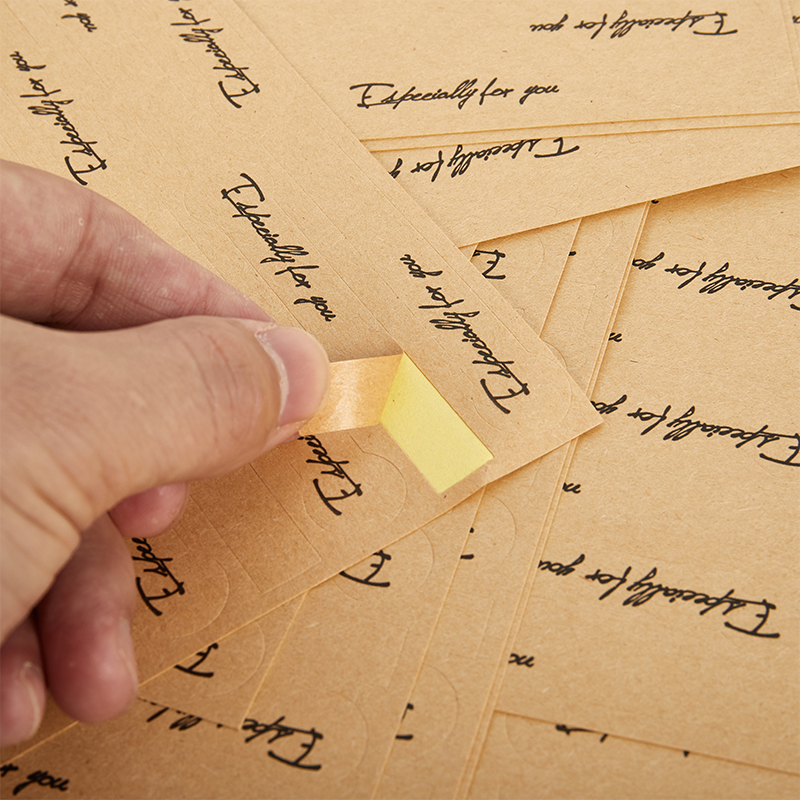 Especially for you
Especially for you
Especially for you
Especially for you
Especially
Especially for you
Especially for you
Especially for you
Especially for you
Especially for you
you